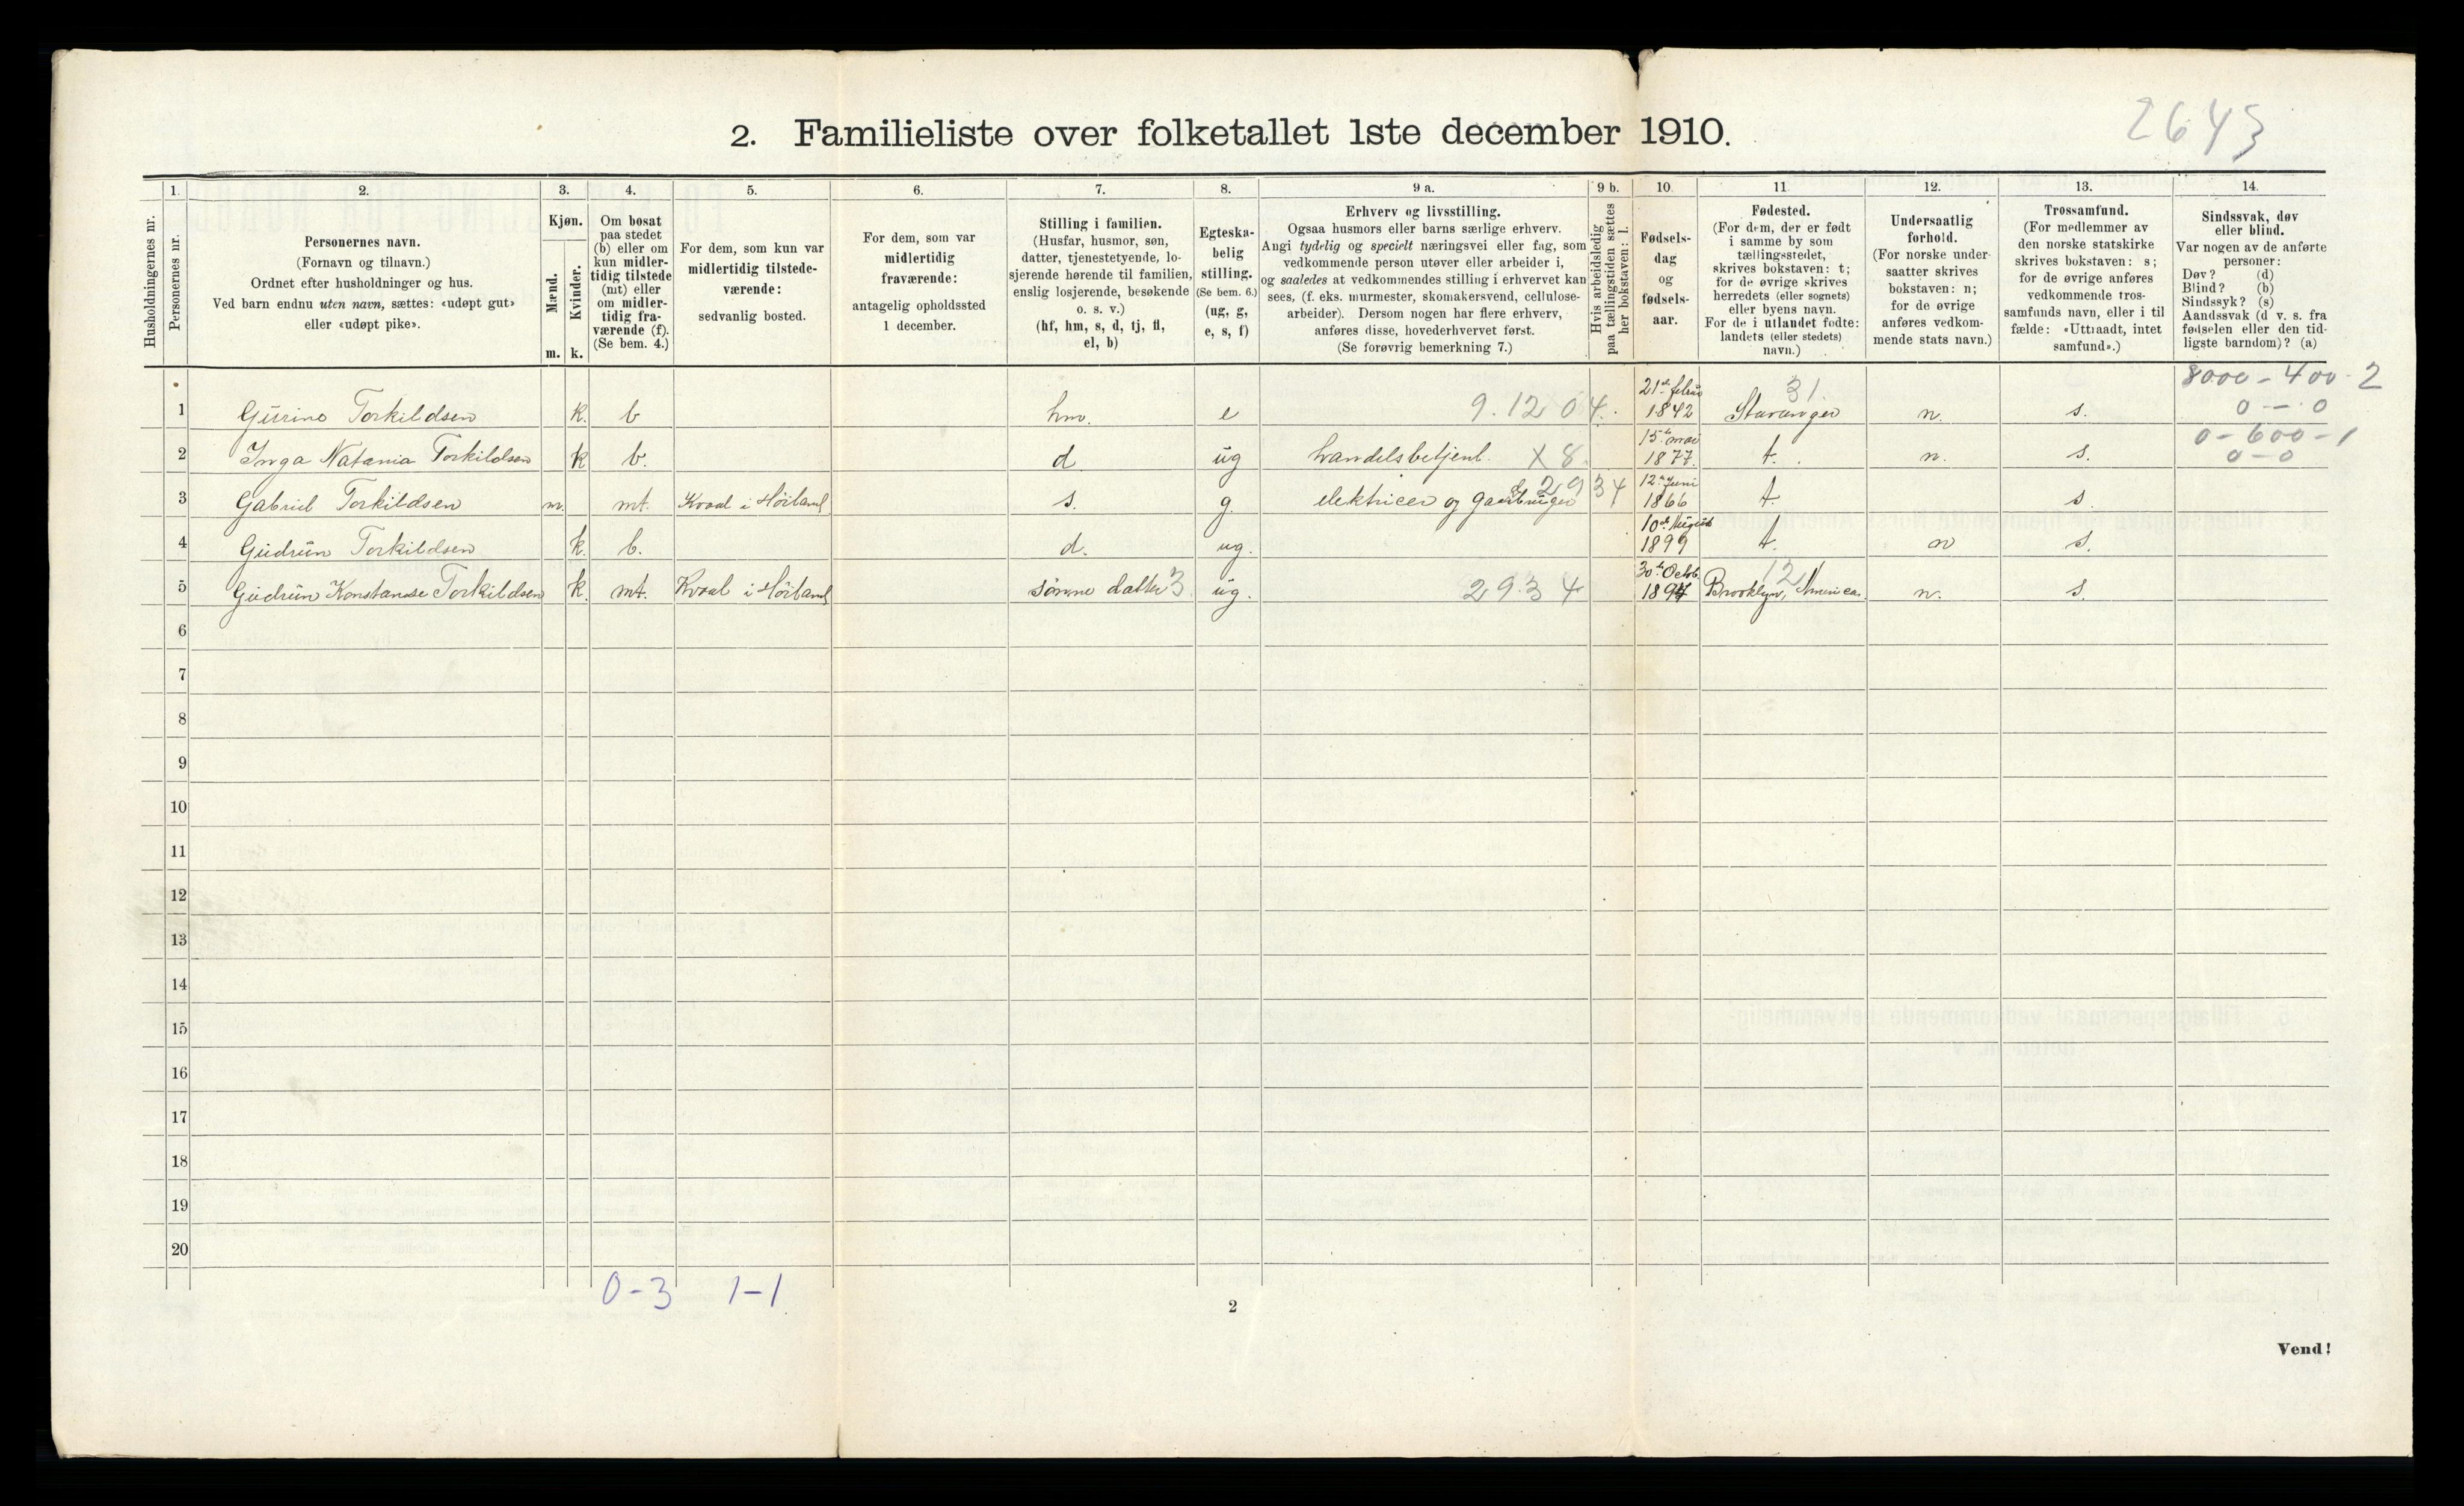 2643
2. Familieliste over folketallet 1ste december 1910.
1. 2. 3. 4. 5. 6. 7. 8. 9 a. 9 b. 10. 11. 12. 13. 14.
Husholdningernes nr.
Personernes nr.
Personernes navn.
(Fornavn og tilnavn.)
Ordnet efter husholdninger og hus.
Ved barn endnu uten navn, sættes: «udøpt gut»
eller «udøpt pike».
Kjøn.
Mænd.
Kvinder.
m. k.
Om bosat
paa stedet
(b) eller om
kun midler-
tidig tilstede
(mt) eller
om midler-
tidig fra-
værende (f).
(Se bem. 4.)
For dem, som kun var
midlertidig tilstede-
værende:
sedvanlig bosted.
For dem, som var
midlertidig
fraværende:
antagelig opholdssted
1 december.
Stilling i familien.
(Husfar, husmor, søn,
datter, tjenestetyende, lo-
sjerende hørende til familien,
enslig losjerende, besøkende
o. s. v.)
(hf, hm, s, d, tj, fl,
el, b)
Egteska-
belig
stilling.
(Se bem. 6.)
(ug, g,
e, s, f)
Erhverv og livsstilling.
Ogsaa husmors eller barns særlige erhverv.
Angi tydelig og specielt næringsvei eller fag, som
vedkommende person utøver eller arbeider i,
og saaledes at vedkommendes stilling i erhvervet kan
sees, (f. eks. murmester, skomakersvend, cellulose-
arbeider). Dersom nogen har flere erhverv,
anføres disse, hovederhvervet først.
(Se forøvrig bemerkning 7.)
Hvis arbeidsledig
paa tællingstiden sættes
her bokstaven: l.
Fødsels-
dag
og
fødsels-
aar.
Fødested.
(For dem, der er født
i samme by som
tællingsstedet,
skrives bokstaven: t;
for de øvrige skrives
herredets (eller sognets)
eller byens navn.
For de i utlandet fødte:
landets (eller stedets)
navn.)
Undersaatlig
forhold.
(For norske under-
saatter skrives
bokstaven: n;
for de øvrige
anføres vedkom-
mende stats navn.)
Trossamfund.
(For medlemmer av
den norske statskirke
skrives bokstaven: s;
for de øvrige anføres
vedkommende tros-
samfunds navn, eller i til
fælde: «Uttraadt, intet
samfund».)
Sindssvak, døv
eller blind.
Var nogen av de anførte
personer:
Døv? (d)
Blind? (b)
Sindssyk? (s)
Aandssvak (d v. s. fra
fødselen eller den tid-
ligste barndom)? (a)
8000 - 400 - 2
1 Gurine Torkildsen k. b hm. e 9. 12 04. 21de febru 1842 31. Stavanger n. s. 0 - 0
0 - 600 - 1
2 Inga Natania Torkildsen k b. d ug handelsbetjent. X 8. 15de mai 1877. t. n. s. 0 - 0
3 Gabriel Torkildsen m. mt. Kvaal i Høiland s. g. elektricer og gaardbruger 29 34 12te Juni 1866 t. s
4 Gudrun Torkildsen k. b. d. ug. 10de August 1899 t. n s.
5 Gudrun Konstanse Torkildsen k. mt. Kvaal i Høiland sønne datter 3 ug. 29. 3 4 30te Octob. 1897 12 Brooklyn, America. n. s.
6
7
8
9
10
11
12
13
14
15
16
17
18
19
20
0 - 3 1 - 1
2
Vend!